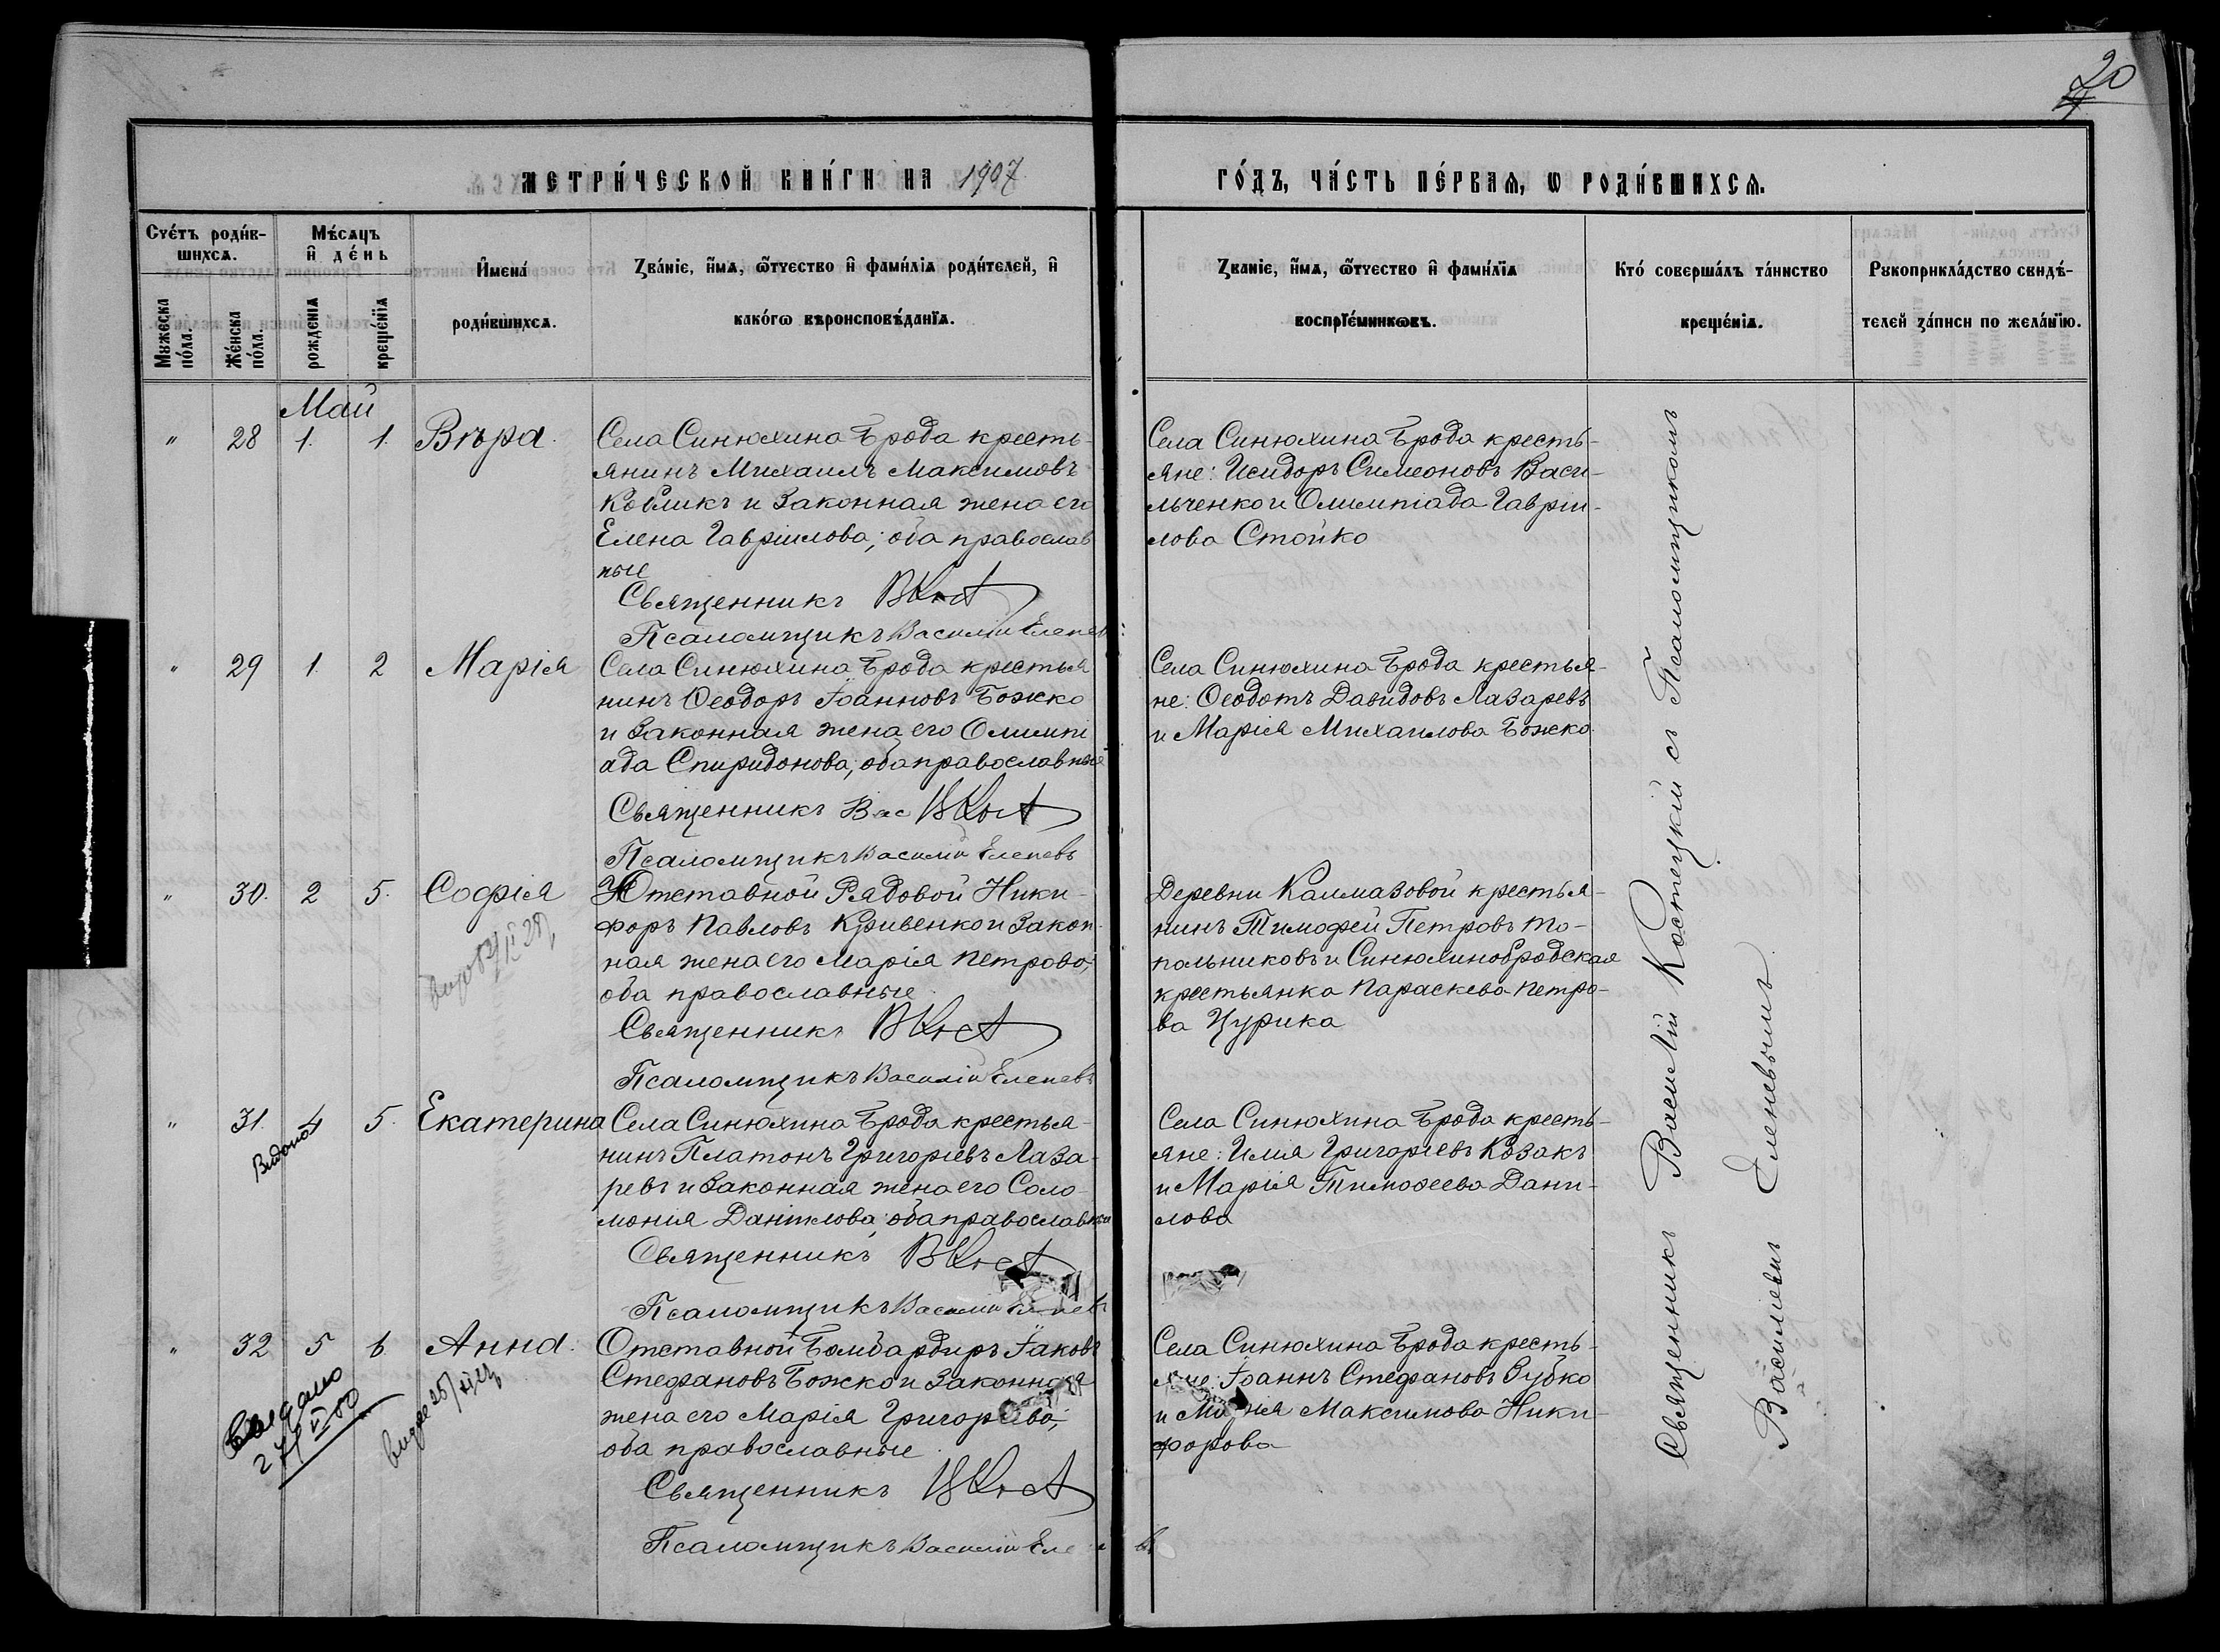 20
МЕТРИ́ЧЕСКОЙ КНИ́ГИ НА 1907
ГО́ДЪ, ЧА́СТЬ ПЕ́РВАѦ, Ѡ РОДИ́ВШИХСѦ.
Счéтъ роди́в-
шихсѧ.
Мꙋжеска
по́ла.
Же́нска
по́ла.
Мѣ́сѧцъ
и҆ де́нь
рожденїѧ
креще́нїѧ
И҆мена́
роди́вшихсѧ.
Зва́нїе, и҆́мѧ, ѻ҆́тчество и҆ фами́лїѧ роди́телей, и҆
како́гѡ вѣроисповѣ́данїѧ.
Званїе, и҆́мѧ, ѻ҆́тчество и҆ фами́лїѧ
воспрїе́мникѡвъ.
Кто́ соверша́лъ та́инство
креще́нїѧ.
Рꙋкоприкла́дство свидѣ́-
телей за́писи по жела́нїю.
Май
" 28 1. 1. Вѣра.
Села Синюхина Брода кресть-
янинъ Михаилъ Максимовъ
Ковликъ и законная жена его
Елена Гавріилова; оба православ
ные
Священникъ
Псаломщикъ Василій Еленевъ
Села Синюхина Брода кресть-
яне: Исидоръ Симеоновъ Васи-
льченко и Олимпіада Гавріи-
лова Стойко
" 29 1. 2 Марія
Села Синюхина Брода крестья
нинъ Ѳеодоръ Іоанновъ Божко
и законная жена его Олимпі
ада Спиридонова; оба православные
Священникъ Вас
Псаломщикъ Василій Еленевъ
Села Синюхина Брода крестья-
не: Ѳеодотъ Давидовъ Лазаревъ
и Марія Михаилова Божко
" 30. 2 5. Софія
Отставной Рядовой Ники-
форъ Павловъ Кривенко и закон-
ная жена его Марія Петрова;
оба православные
Священникъ
Псаломщикъ Василій Еленевъ
Деревни Калмазовой крестья-
нинъ Тимофей Петровъ То-
польниковъ и Синюхинобродская
крестьянка Параскева Петро-
ва Цурика
" 31. 4 5. Екатерина
Видана
Села Синюхина Брода крестья-
нинъ Платонъ Григоріевъ Лаза-
ревъ и законная жена его Соло-
монія Даніилова; оба православные
Священникъ
Псаломщикъ Василій Еленевъ
Села Синюхина Брода кресть-
яне: Илія Григоріевъ Козакъ
и Марія Тимоѳеева Дани-
лова
" 32 5 6 Анна.
Отставной Бомбардиръ Іаковъ
Стефановъ Божко и законная
жена его Марія Григорьева;
оба православные
Священникъ
Псаломщикъ Василій
Села Синюхина Брода кресть-
яне: Іоаннъ Стефановъ Зубко
и Марія Максимова Ники-
форова
Священникъ Василій Костецкій съ Псаломщикомъ
Василіемъ Еленевымъ